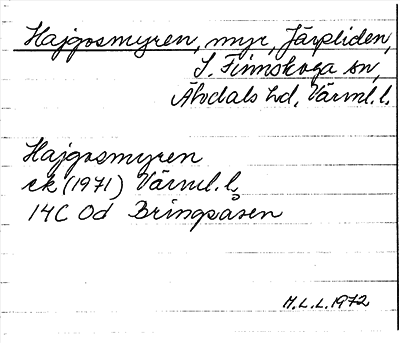 Hajgosmyren, myr, Järpliden,
S. Finnskoga sn,
Älvdals hd, Värml. l.
Hajgosmyren
ek (1971) Värml. l,
14C 0d Bringsåsen
M.L.L. 1972